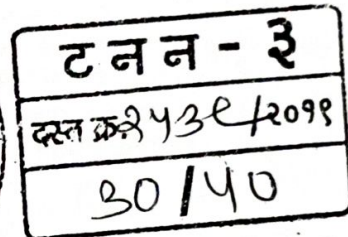 टनन - ३
दस्त क्र.२५३९/२०११
३०/५०